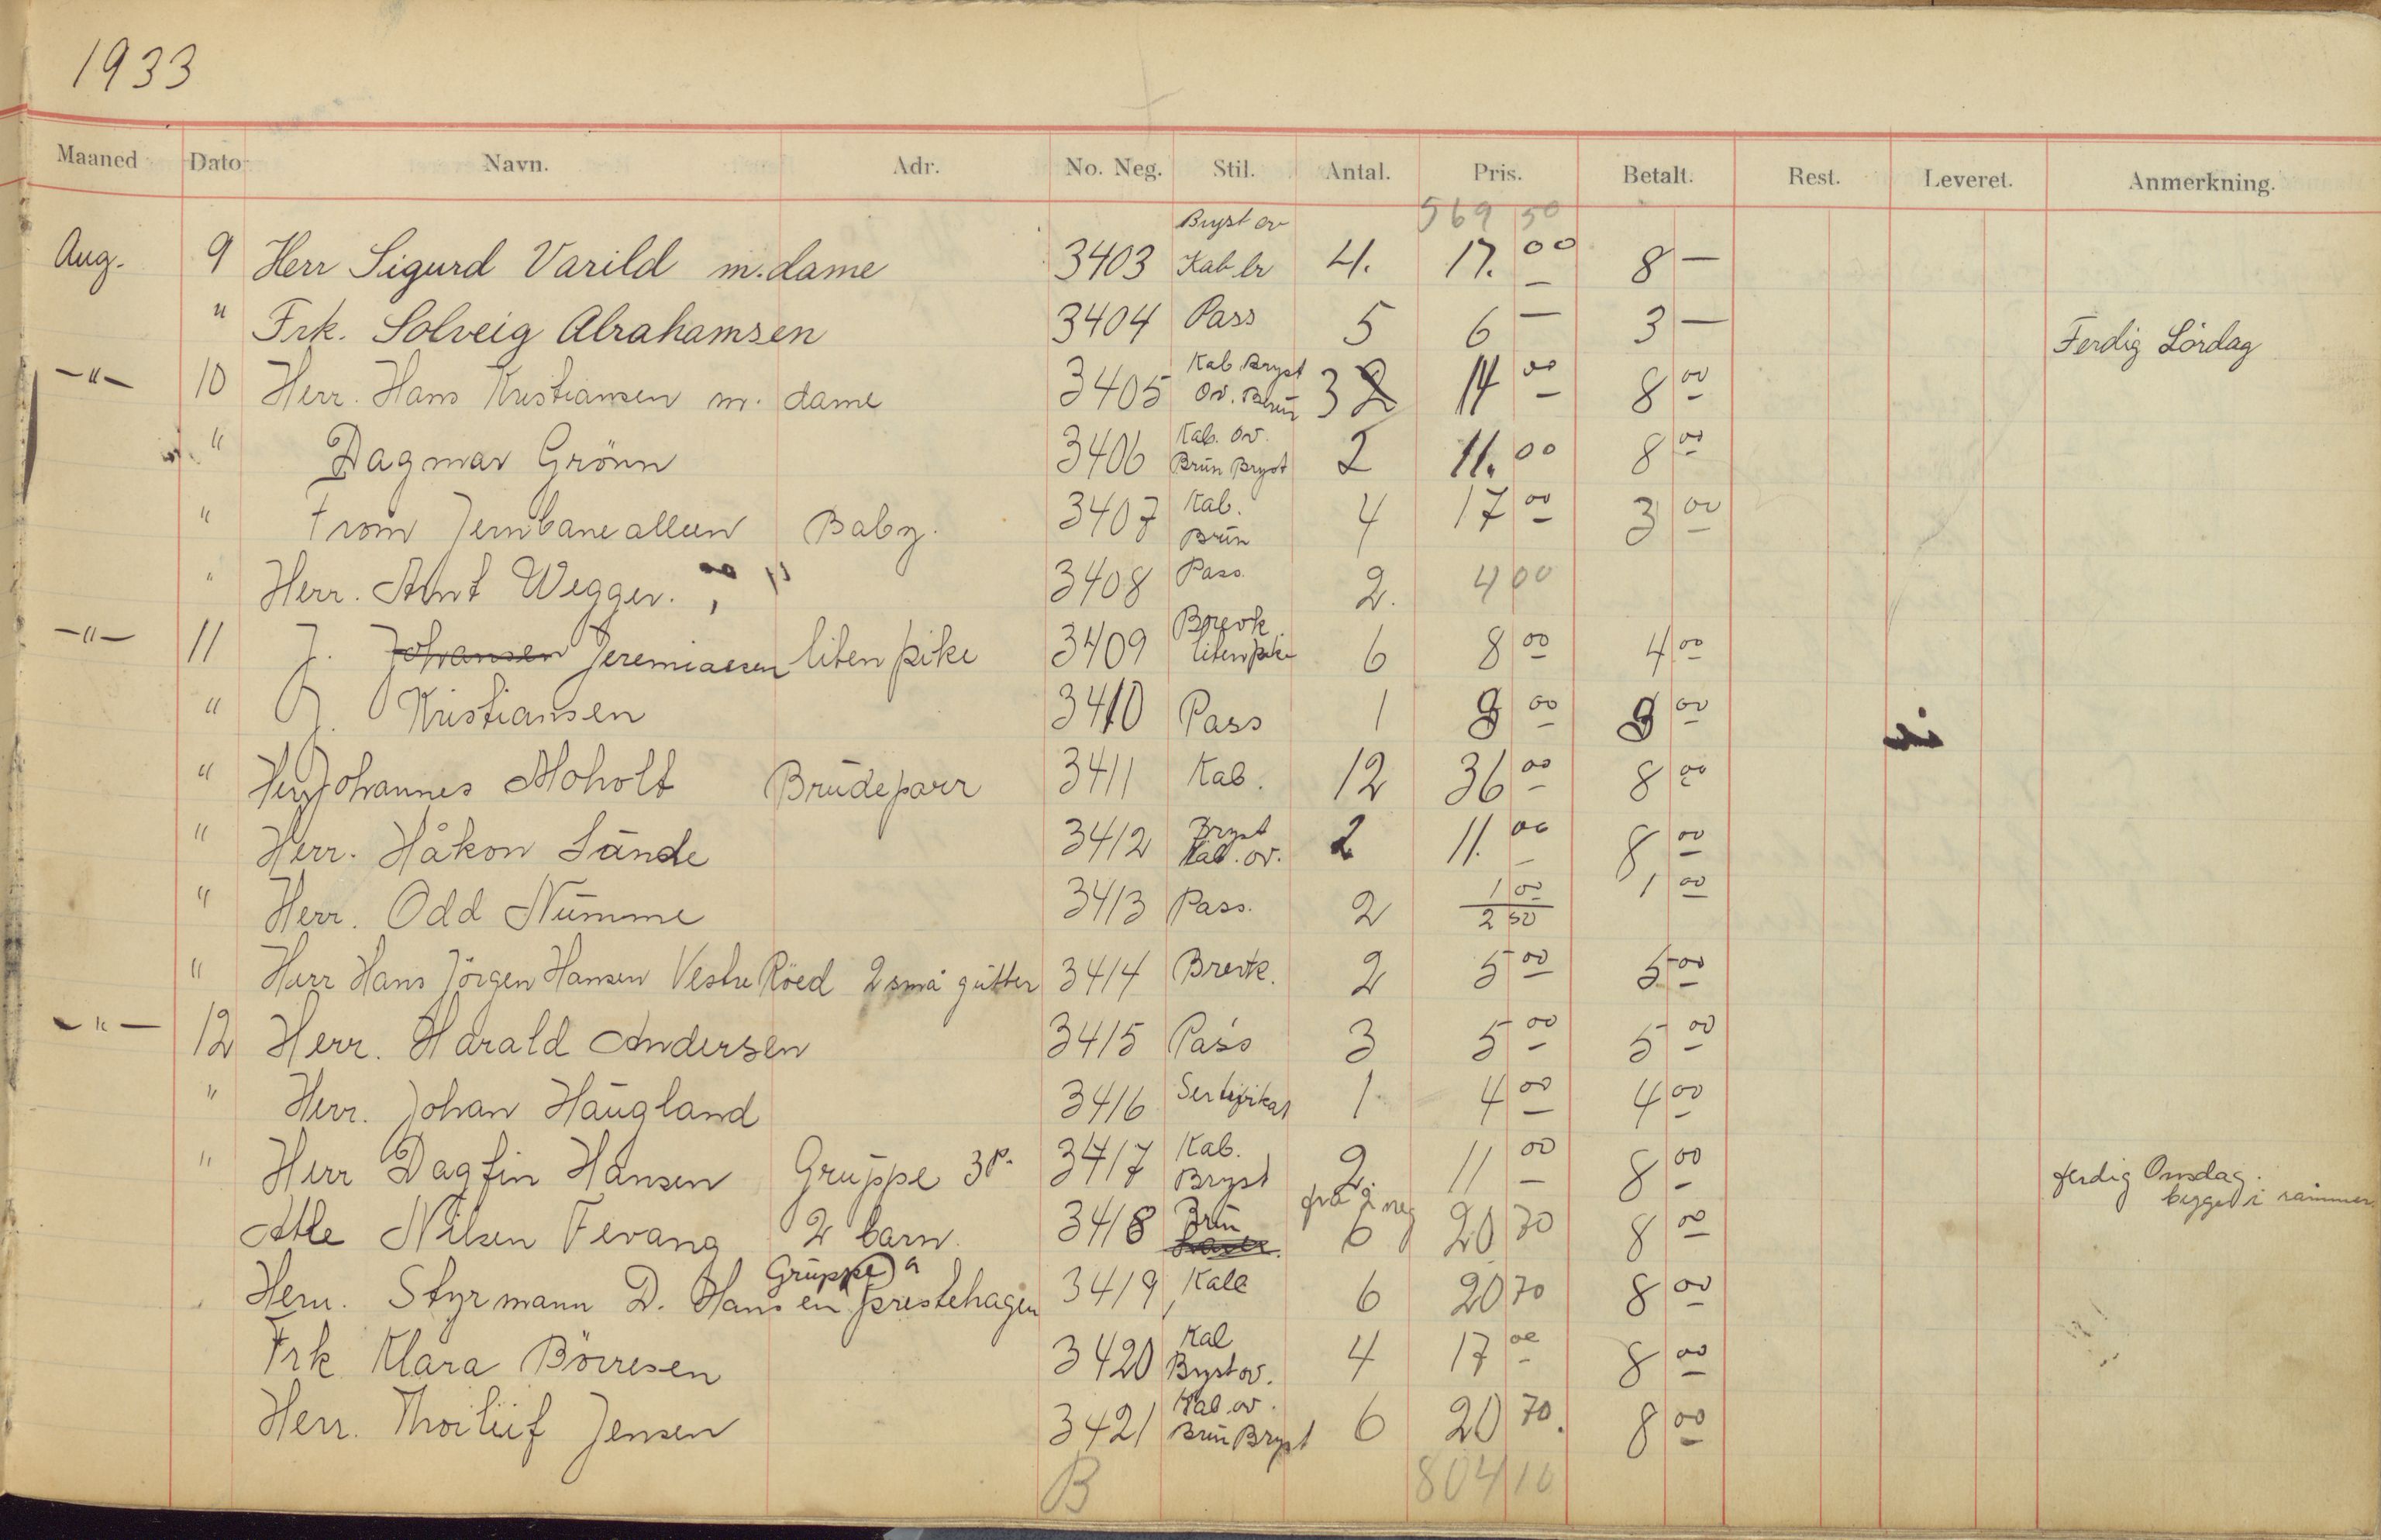 1933
Maaned Dato Navn. Adr. No. Neg. Stil. Antal. Pris. Betalt. Rest. Leveret. Anmerkning.
569 50
Bryst ov
Aug. 9 Herr Sigurd Varild m. dame 3403 Kab br 4. 17.00 8 —
" Frk. Solveig Abrahamsen 3404 Pass 5 6 — 3 — Ferdig Lördag
Kab Bryst
—"— 10 Herr. Hans Kristiansen m. dame 3405 Ov. Brün 3 2 14 00 8 00
Kab. Ov.
" Dagmar Grönn 3406 Brün Bryst 2 11.00 8 00
Kab.
" From Jernbanealleen Baby. 3407 Brün 4 17 00 3 00
" Herr. Arnt Wegger. 3408 Pass 2. 4 00
Brevk
—"— 11 J. Johansen Jeremiassen liten pike 3409 liten pike 6 8 00 4 00
" J. Kristiansen 3410 Pass 1 00 00
" Herr Johannes Moholt Brüdeparr 3411 Kab. 12 36 00 8 00
Bryst
" Herr. Håkon Sände 3412 Kab. ov. 2 11. 00 8 00
" Herr. Odd Nümme 3413 Pass. 2 1 00 1 00
2 50
" Herr Hans Jörgen Hansen Vestre Röed 2 små gütter 3414 Brevk. 2 5 00 5 00
—"— 12 Herr. Harald Andersen 3415 Pass 3 5 00 5 00
" Herr. Johan Haügland 3416 Sertifikat 1 4 00 4 00
Kab.
" Herr Dagfin Hansen Grüppe 3 P. 3417 Bryst 2 11 00 8 00 ferdig Onsdag.
begge i rammer
fra 2 neg
Atle Nilsen Fevang 2 barn. 3418 Brün 6 20 70 8 00
Grüppe a
Herr. Styrmann D. Hansen prestehagen 3419 Kab 6 20 70 8 00
Kab
Frk Klara Börresen 3420 Bryst ov. 4 17 00 8 00
Kab ov.
Herr. Thorlüf Jensen 3421 Brün Bryst 6 20 70. 8 00
B 804 10